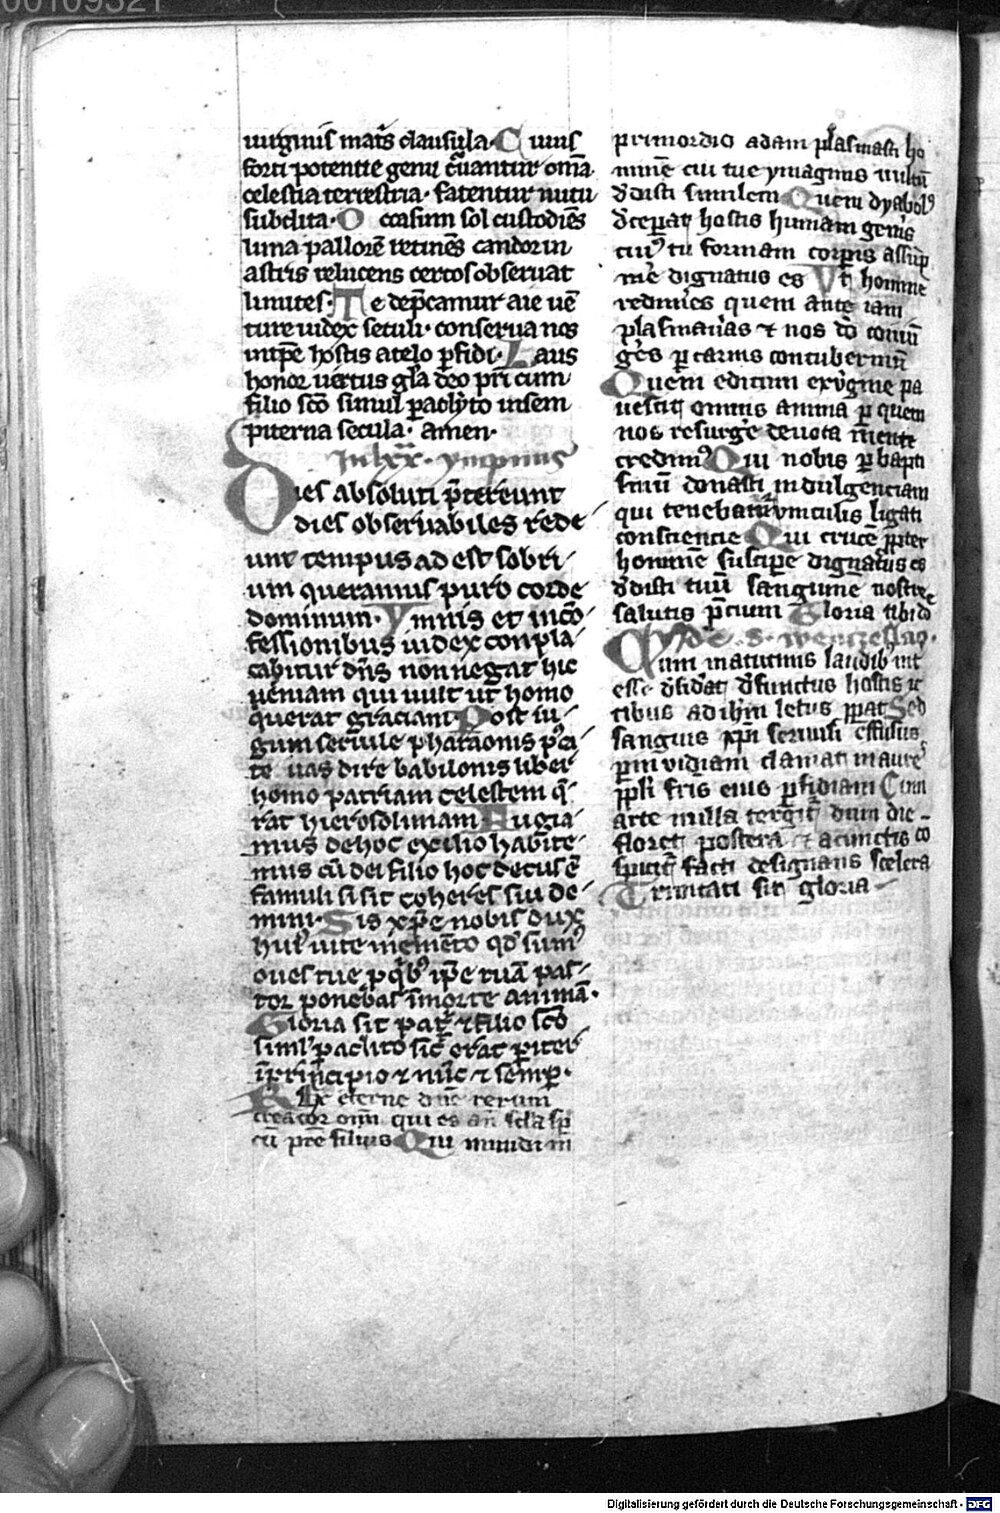 00109321
uirginis mat̄s clausula· C uius
forti potentie genu c̄uantur om̄a
celestia terrestria· fatentur nutu
subdita· O ccasum sol custodiēs
luna pallorē retinēs candor in
astris relucens certos obseruat
limites· Te dep̄camur aie uē
ture iudex seculi· conserua nos
intp̄e hostis a telo p̄fidi· Laus
honor uirtus gl̄a deo pr̄i cum
filio sc̄o simul p̄aclyto in sem
piterna secula· amen·
In lxx· ympnus
Dies absoluti p̄tereunt
dies obseruabiles rede
unt tempus ad est sobri
um queramus puro corde
dominum· Ymnis et in cō
fessionibus iudex conpla
cabitur dn̄s non negat hic
ueniam qui uult ut homo
querat graciam· Post iu
gum seruile pharaonis p̄ cā
te nas dire babilonis liber
homo patriam celestem q̄
rat hierosolimam Fugia
mus de hoc exilio habite
mus cū dei filio hoc decus ē
famuli si sit coheres sui do
mini· Sis xp̄e nobis dux
huī uite memēto qd̄ sum⁹
oues tue p q̄b⁹ ip̄e tuā pas
tor ponebas ī morte animā·
Gloria sit pat̄ ⁊ filio sc̄o
siml̄ p̄aclito sic̄ erat p̄iter
ī principio ⁊ nūc ⁊ semp̄·
Rex eterne dn̄e rerum
creator om̄ qui es an̄ sc̄la sp̄
cū pr̄e filius Qui mundi in
primordio adam plasmasti ho
minē cui tue ymaginis uultū
d̄disti similem Quem dyabol⁹
d̄ceperat hostis humani gen̄is
cui⁹ tu formam corp̄is assūp
me dignatus es Vt hominē
redimēs quem ante iam
plasmauas ⁊ nos d̄o coniū
gēs p carnis contuberniū
Quem editum ex ṽgine pa
uescit omnis anima p quem
nos resurḡe deuota mente
credim⁹ Qui nobis p bapti
smū donasti indulgenciam
qui tenebamur vinculis ligati
consciencie Qui crucē ppter
hominē suscipe dignatus es
d̄disti tuū sanguinē nostre
salutis p̄cium Gloria tibi dō
De s. wenczeslao·
Cum matutinis laudib⁹ int
esse d̄sid̄at d̄functus hostis ic
tibus ad ih̄m letus pperat Sed
sanguis xp̄i seruuli effusus
p inuidiam clamat in aure
ppl̄i fr̄is eius p̄fidiam Cum
arte nulla tergit̄ dum die
floret postera ⁊ acunctis co
spicit̄ facti designans scelera
Trinitati sit gloria
Digitalisierung gefördert durch die Deutsche Forschungsgemeinschaft - DFG